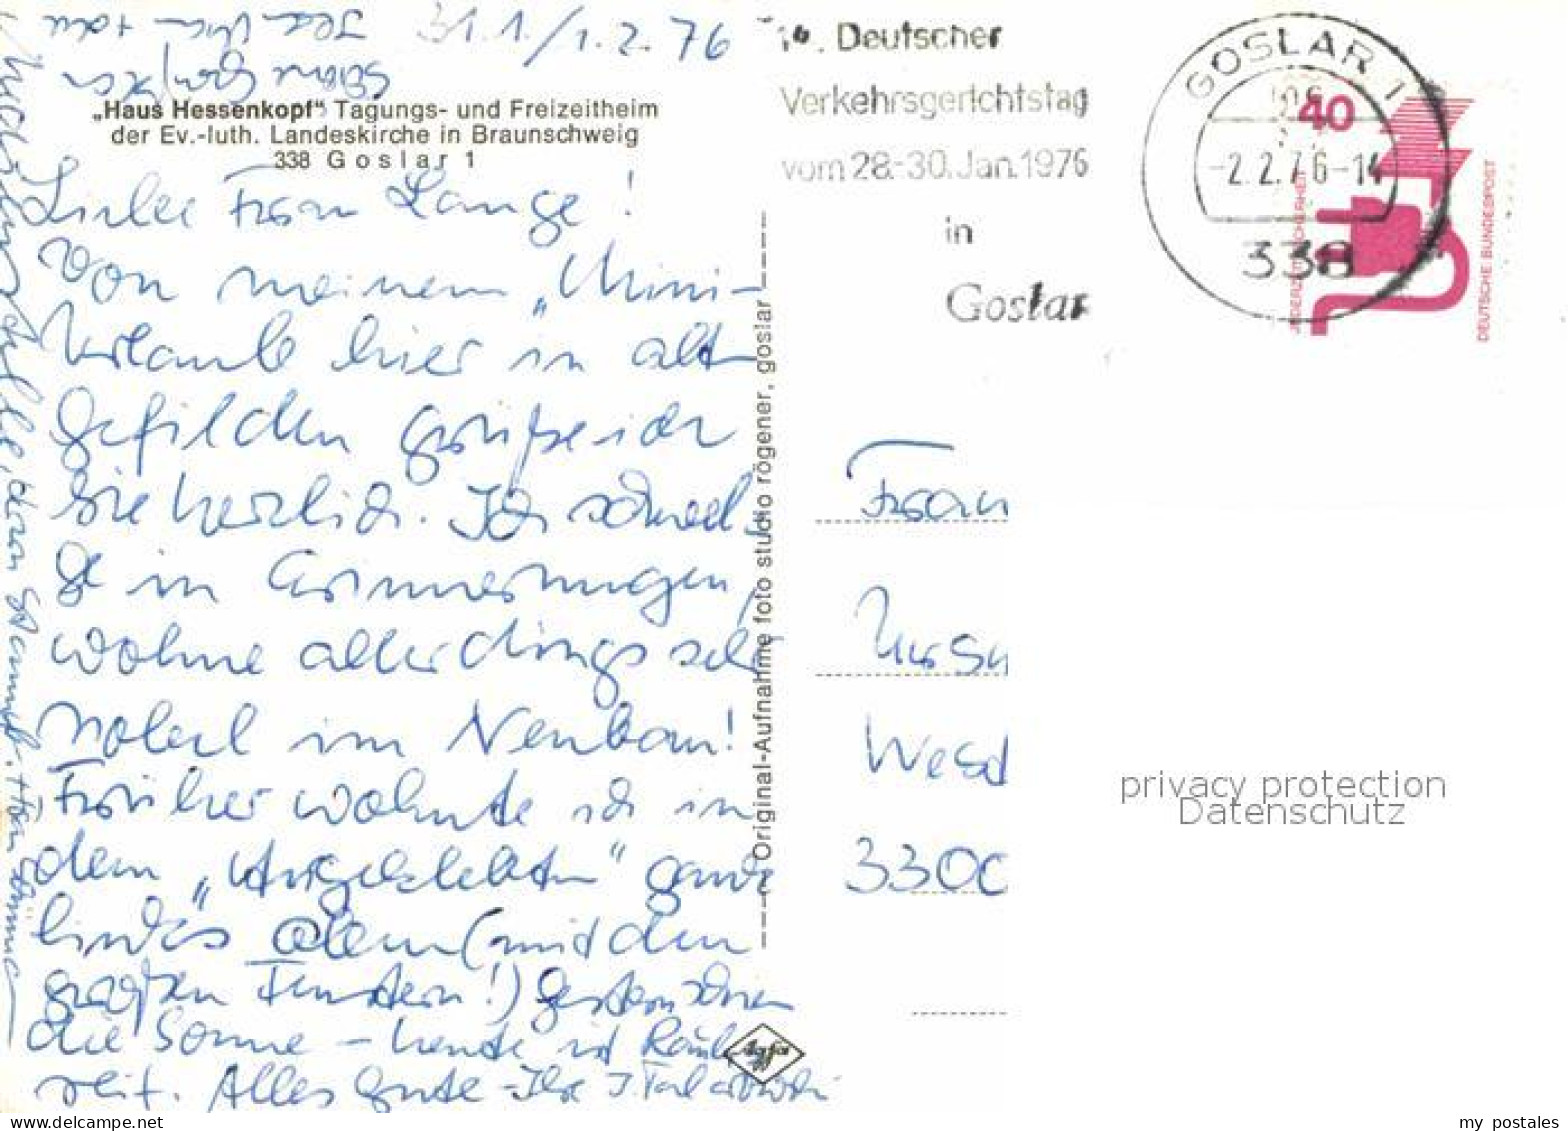 31.1./1.2.76
„Haus Hessenkopf“ Tagungs- und Freizeitheim
der Ev.-luth. Landeskirche in Braunschweig
338 Goslar 1
Liebe Frau Lange!
Von meinem „Mini-
Urlaub hier in alt
gefilden grüße ich
Sie herzlich. Ich schwel
ge in Erinnerungen,
wohne allerdings sehr
nobel im Neubau!
Früher wohnte ich in
dem „ ganz
links oben (mit den
großen Fenstern!) Gestern schien
die Sonne – heute ist Rauh
reif. Alles Gute - Ihre J.
Original-Aufnahme foto studio rögener, goslar
Agfa
14. Deutscher
Verkehrsgerichtstag
vom 28.-30. Jan. 1976
in
Goslar
GOSLAR 1
-2.2.76-14
338
40
JEDERZEIT SICHERHEIT
DEUTSCHE BUNDESPOST
Frau
Ursu
West
3300
privacy protection
Datenschutz
my postales